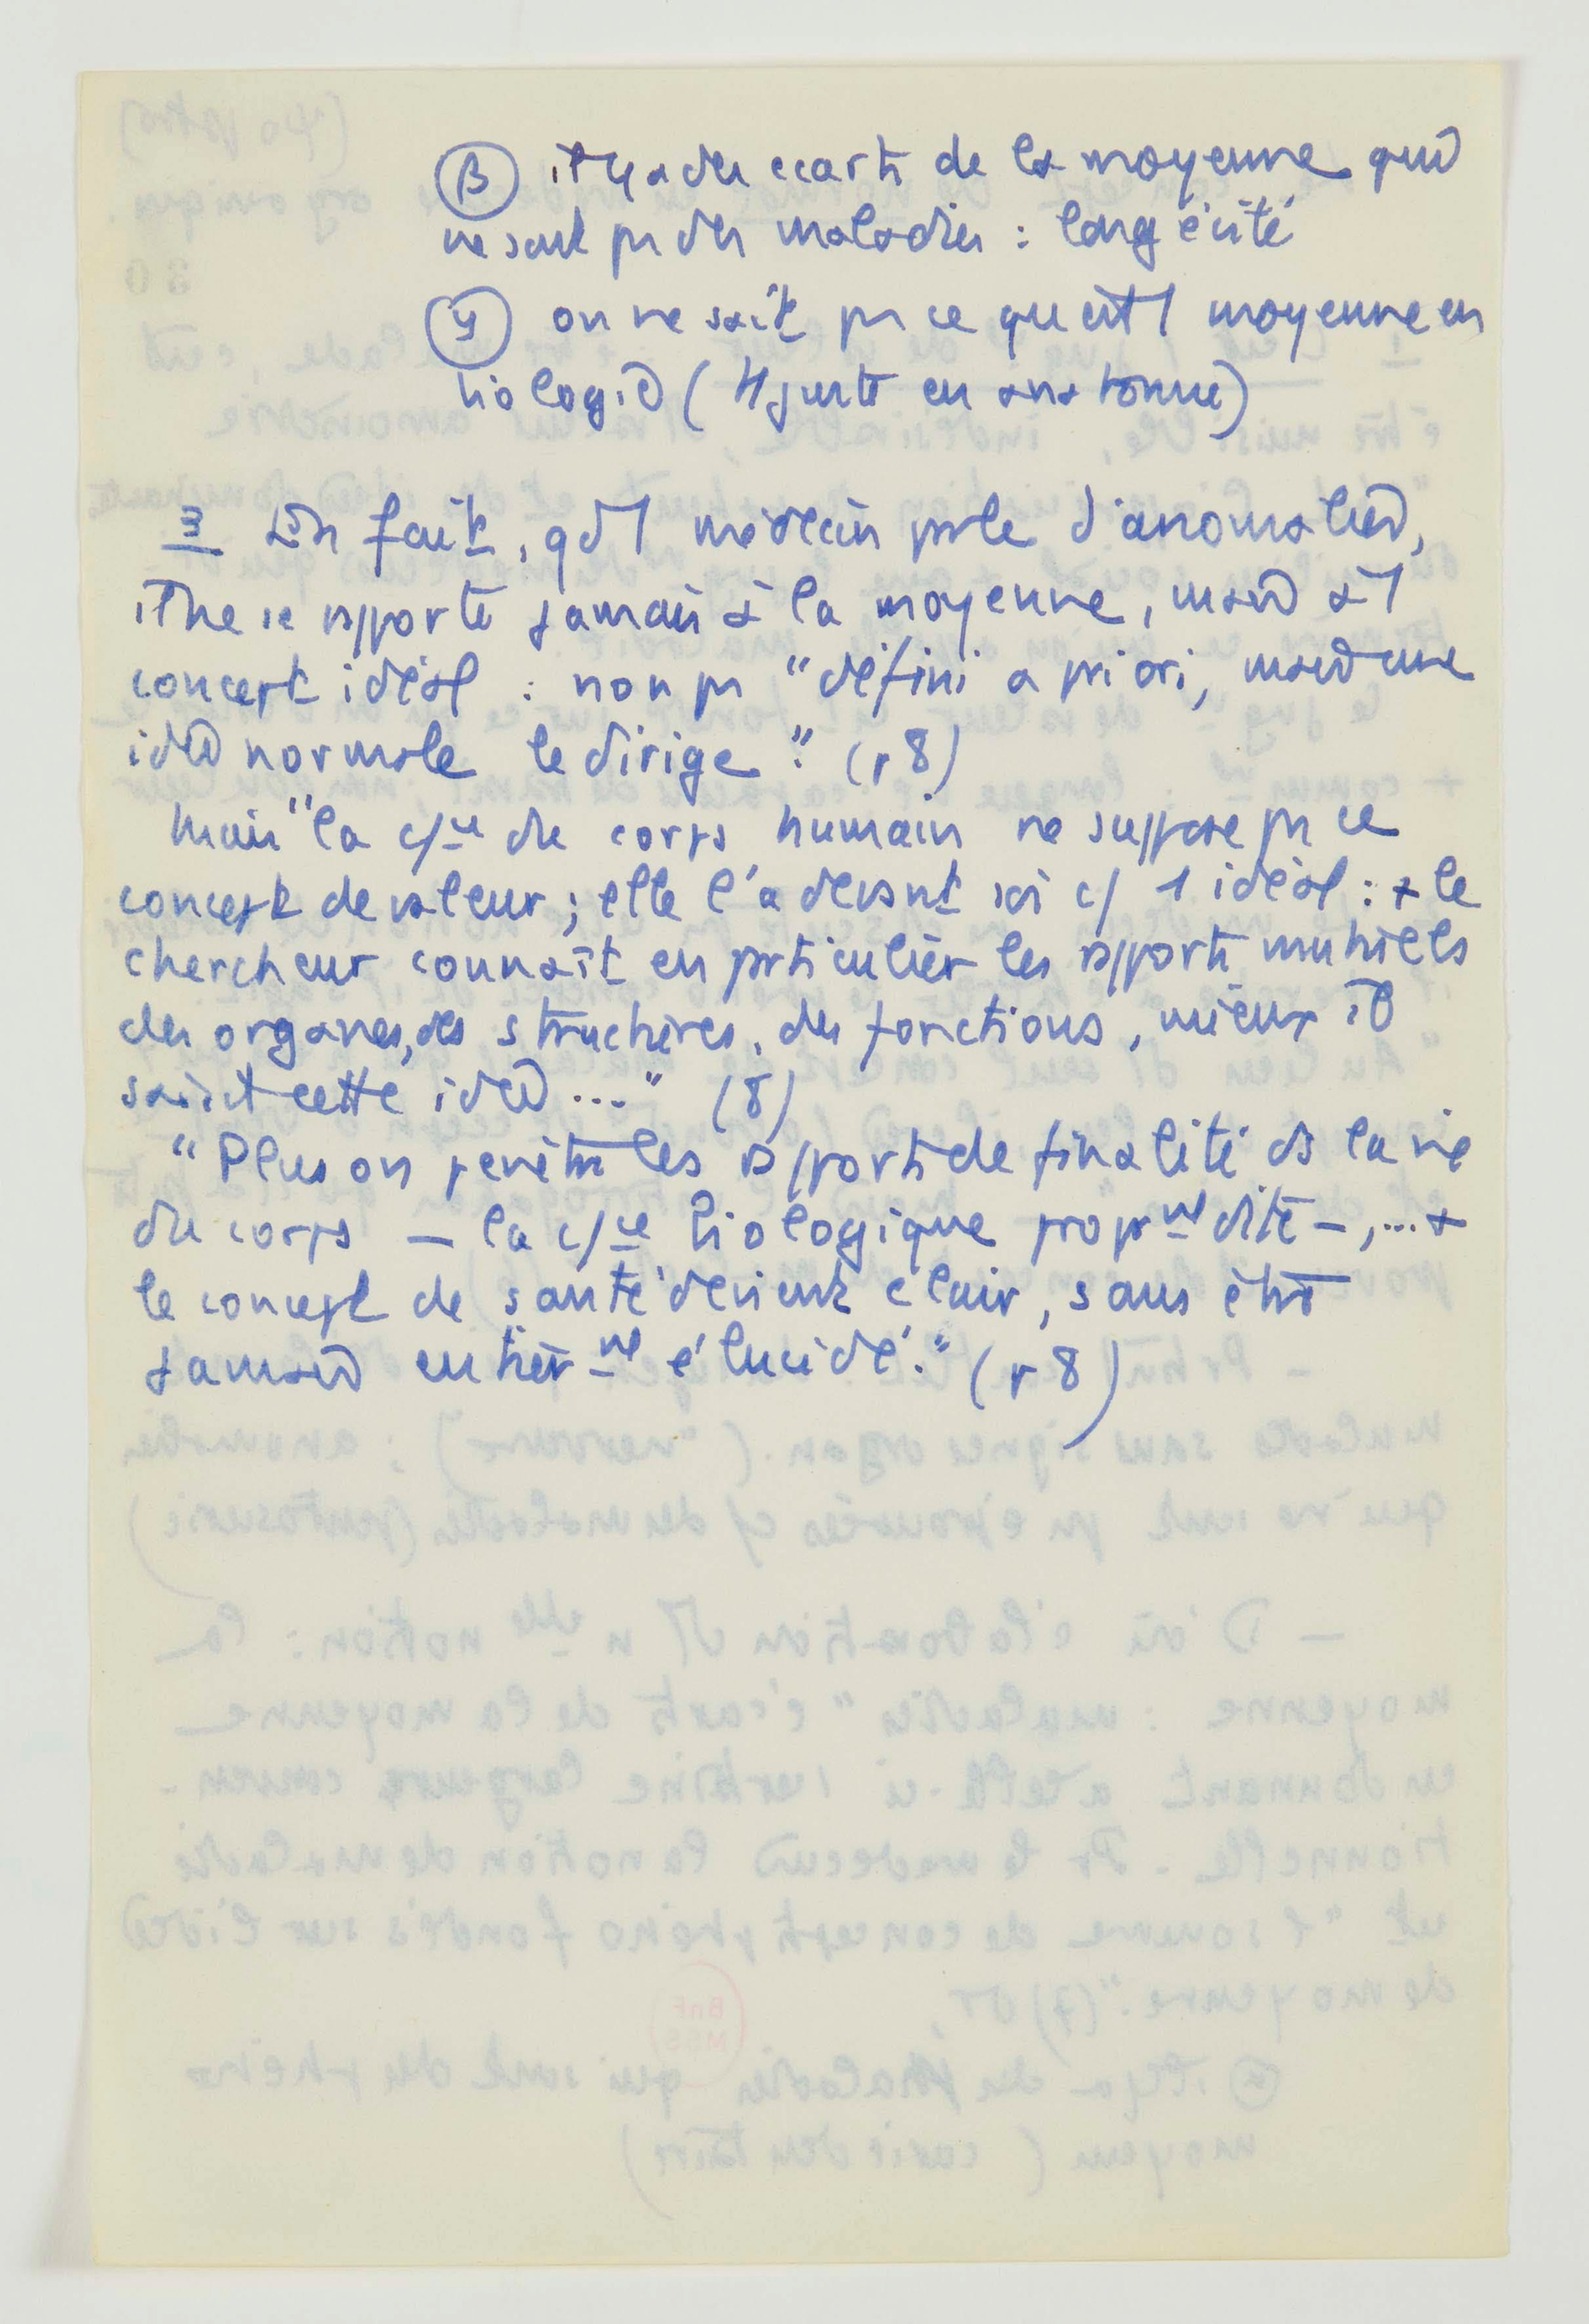 (β) il y a des ecarts de la moyenne qui
ne sont pas des maladies : longévité
(γ) on ne sait pas ce qu'est 1 moyenne en
biologie ( juste en anatomie)
3 En fait, qd 1 médecin parle d'anomalies,
il ne se rapporte jamais à la moyenne, mais à 1
concept idéal : non pas "défini a priori, mais une
idée normale le dirige." (p 8)
Mais "la c/ce du corps humain ne suppose pas ce
concept de valeur ; elle l'a devant soi c/ 1 idéal : + le
chercheur connaît en particulier les rapports mutuels
des organes, des structures, des fonctions, mieux il
saisit cette idée ..." (8)
"Plus on pénètre les rapports de finalité ds la vie
du corps – la c/ce biologique propr nt dite –, ... +
le concept de santé devient clair, sans être
jamais entièr nt élucidé." (p 8)